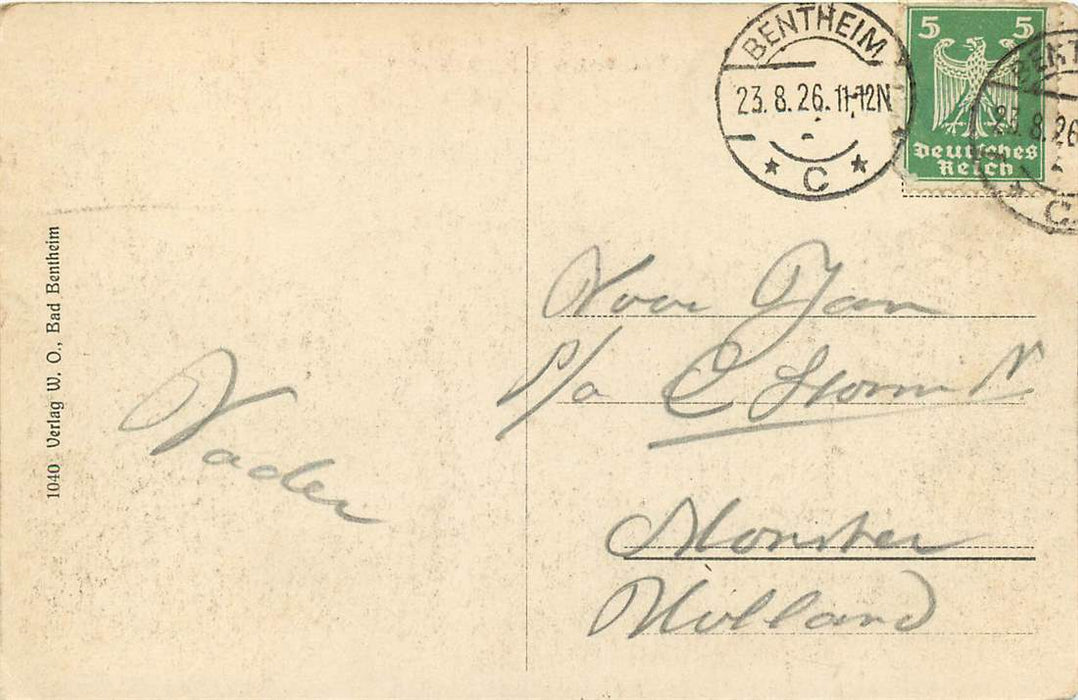 BENTHEIM
23.8.26.11-12N
C
5 5
Deutsches
Reich
BENT
23.8.26
C
1040 Verlag W. O., Bad Bentheim
Vader
Voor Jan
p/a C
Monster
Holland